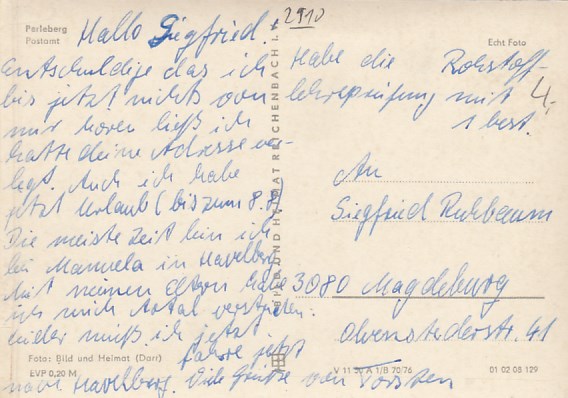 Perleberg
Postamt
Hallo Siegfried!
entschuldige das ich
bis jetzt nichts von
mir hören ließ ich
hatte deine Adresse ver-
legt. Auch ich habe
jetzt Urlaub (bis zum 8.8)
Die meiste Zeit bin ich
bei Manuela in Havelberg.
Mit meinen Eltern habe
ich mich total verstritten.
muß ich jetzt.
Fahre jetzt
nach Havelberg. Viele Grüße von Torsten
2910
Echt Foto
Habe die Rohstoff-
lehreprüfung mit
1 best.
4,-
An
Siegfried
3080 Magdeburg
Olvenstedterstr. 41
BILD UND HEIMAT REICHENBACH I. V.
Foto: Bild und Heimat (Darr)
EVP 0,20 M
V 11 50 A 1/B 70/76
01 02 08 129